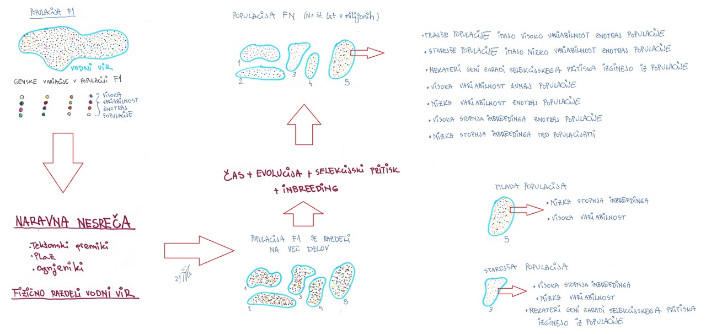 POPULACIJA F1
VODNI VIR
GENSKE VARIACIJE V POPULACIJI F1
VISOKA
VARIABILNOST
ZNOTRAJ
POPULACIJE
NARAVNA NESREČA
• Tektonski premiki
• Plaz
• Ognjeniki
FIZIČNO RAZDELI VODNI VIR
POPULACIJA FN (No št. let v milijonih)
1
2
3
4
5
ČAS + EVOLUCIJA + SELEKCIJSKI PRITISK
+ INBREEDING
POPULACIJA F1 SE RAZDELI
NA VEČ DELOV
1
2
3
4
5
• MLAJŠE POPULACIJE IMAJO VISOKO VARIABILNOST ZNOTRAJ POPULACIJE
• STAREJŠE POPULACIJE IMAJO NIZKO VARIABILNOST ZNOTRAJ POPULACIJE
• NEKATERI GENI ZARADI SELEKCIJSKEGA PRITISKA IZGINEJO IZ POPULACIJE
• VISOKA VARIABILNOST ZUNAJ POPULACIJE
• NIZKA VARIABILNOST ZNOTRAJ POPULACIJE
• VISOKA STOPNJA INBREEDINGA ZNOTRAJ POPULACIJE
• NIZKA STOPNJA INBREEDINGA MED POPULACIJAMI
MLADA POPULACIJA
• NIZKA STOPNJA INBREEDINGA
• VISOKA VARIABILNOST
5
STAREJŠA POPULACIJA
• VISOKA STOPNJA INBREEDINGA
• NIZKA VARIABILNOST
• NEKATERI GENI ZARADI SELEKCIJSKEGA PRITISKA
IZGINEJO IZ POPULACIJE
3